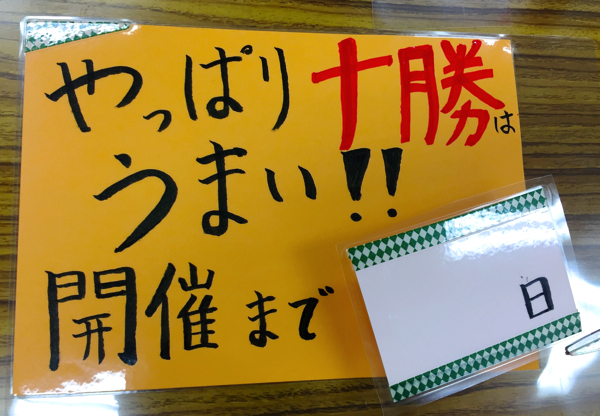 やっぱり十勝は
うまい!!
開催まで
日